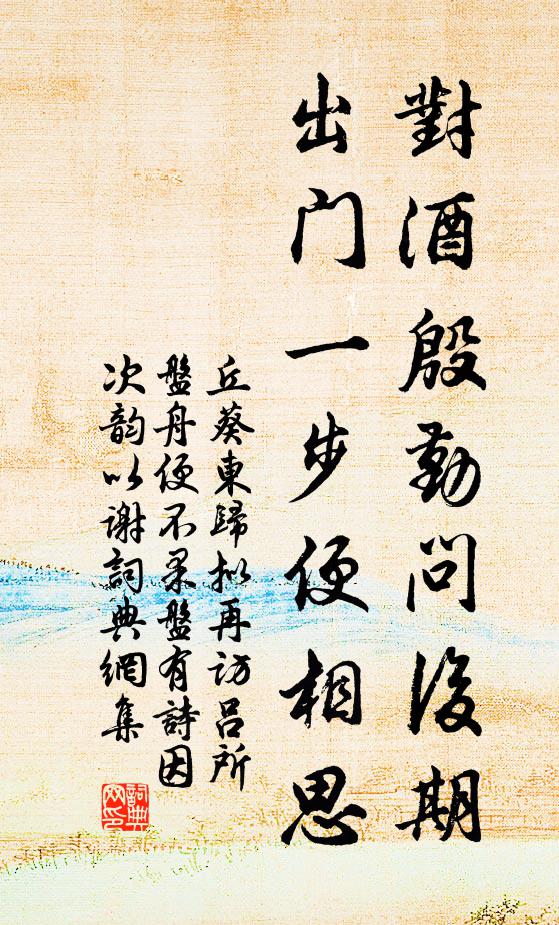 對酒殷勤問後期
出门一步便相思
丘葵東歸擬再访吕所
盤舟便不果盤有詩因
次韵以谢詞典網集
詞典
网印